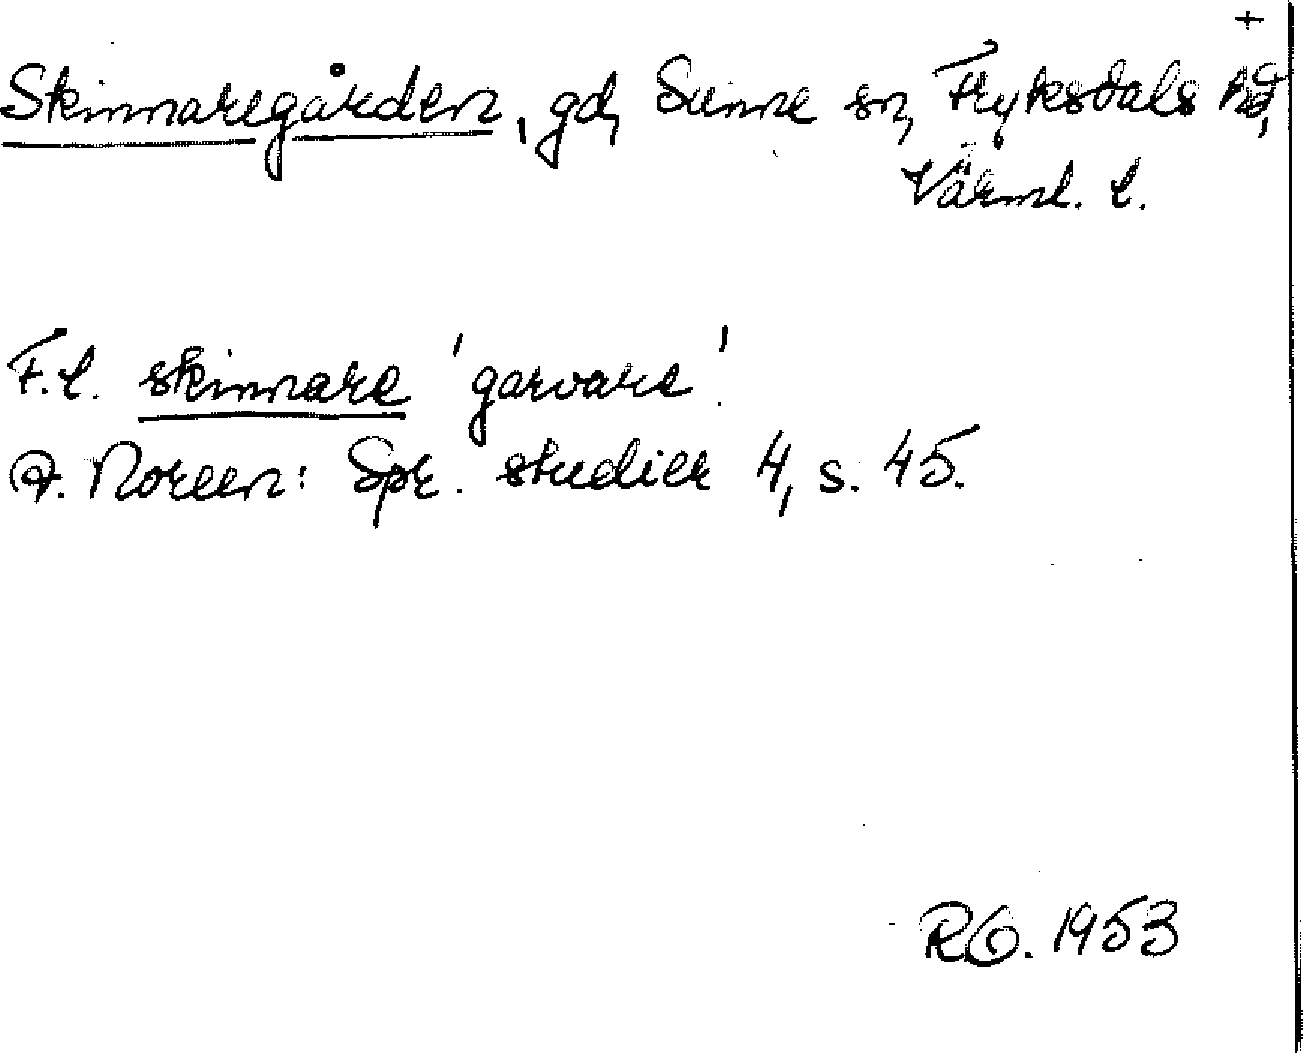 +
Skinnaregården, gd, Sunne sn, Fryksdals hd,
Värml. l.
F.l. skinnare 'garvare'.
A. Noreen: Spr. studier 4, s. 45.
RO. 1953